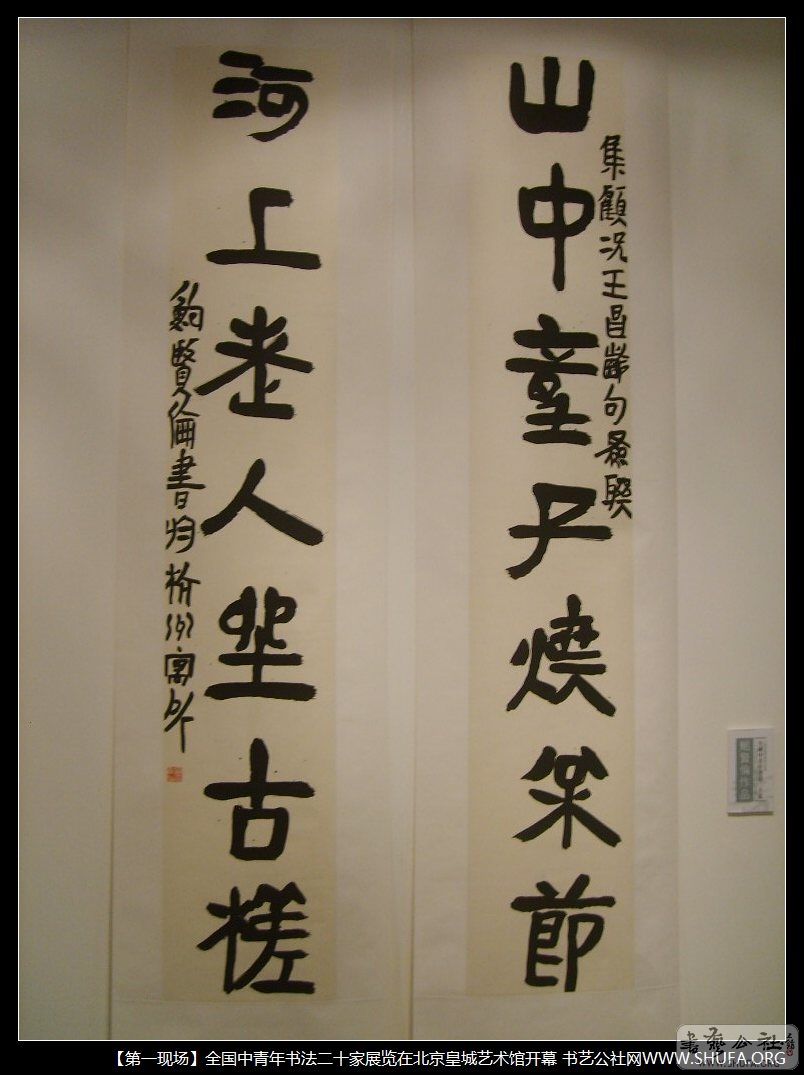 山中童子燒松節
集顧況王昌齡句爲聯
河上老人坐古槎
鮑賢倫書於杭州寓所
書藝公社
WWW.SHUFA.ORG
【第一现场】全国中青年书法二十家展览在北京皇城艺术馆开幕 书艺公社网WWW.SHUFA.ORG